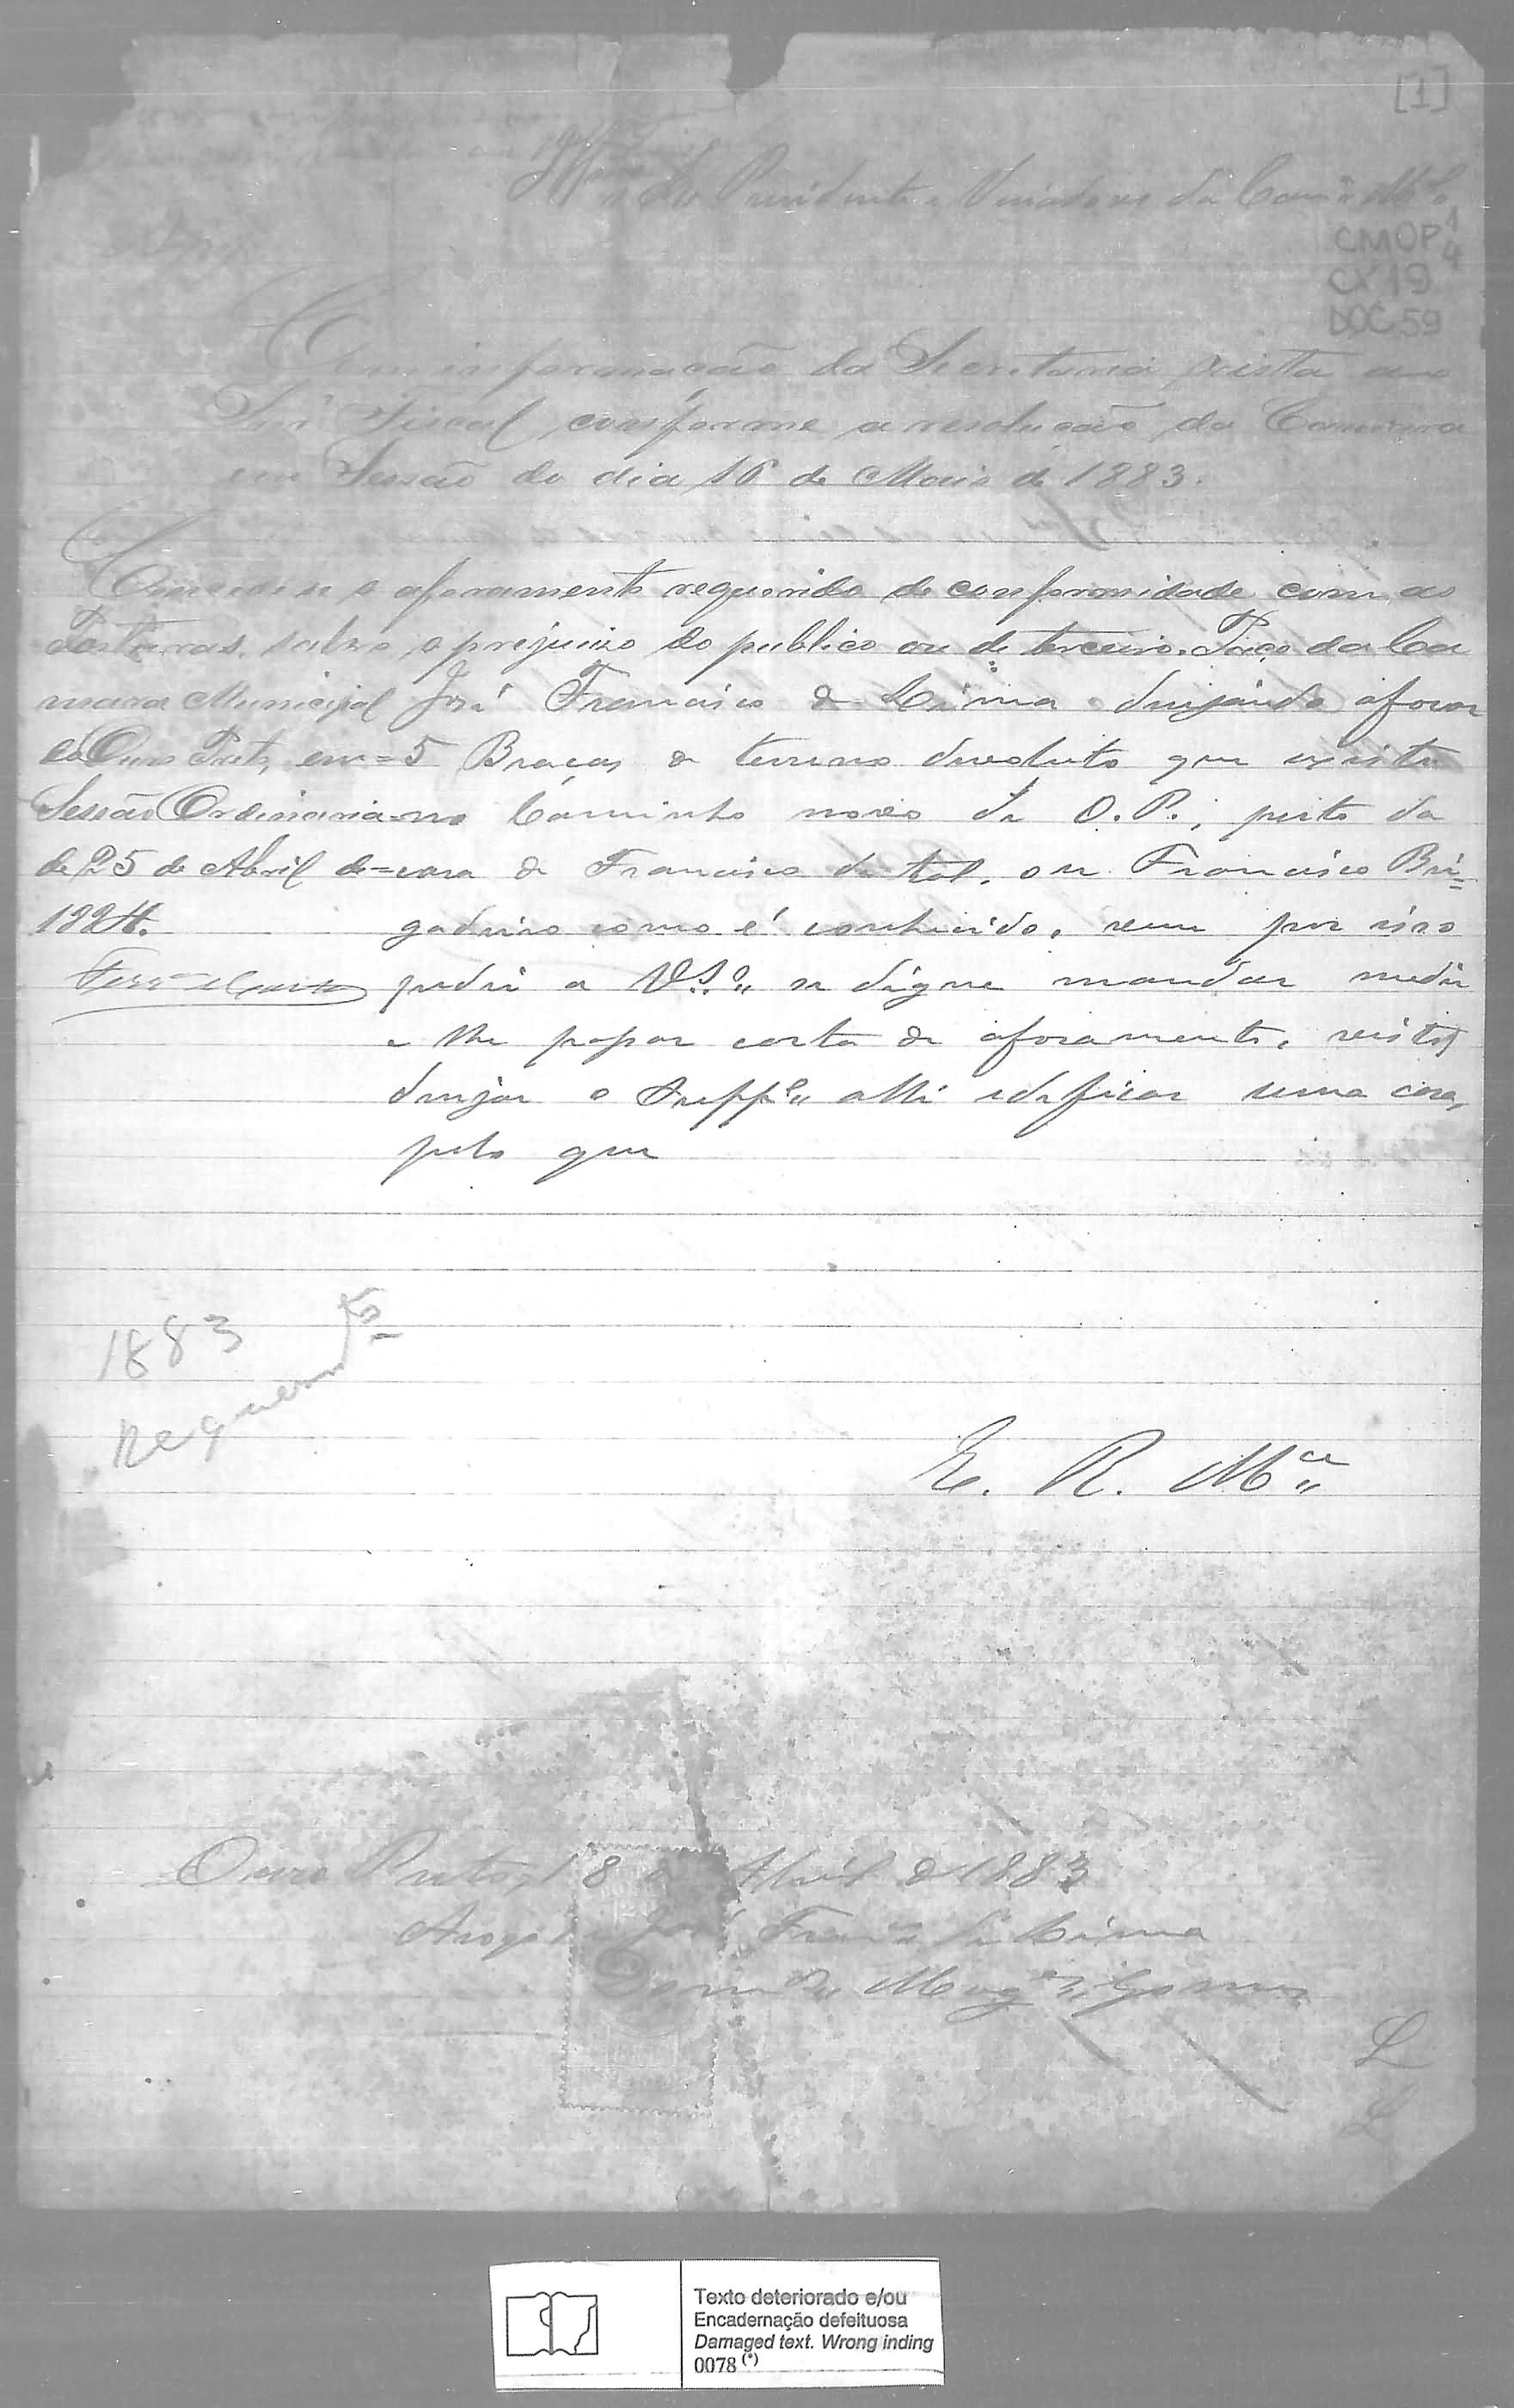 [1]
Ill.mos Snrs Presidente e Vereadores da Cam.ª M.al
CMOP 1/4
CX 19
DOC 59
Com informação da Secretaria vista ao
Snr Fiscal conforme a resolução da Camara
em Sessão do dia 16 de Maio de 1883.
Concede-se o aforamento requerido de conformidade com as
Posturas, salvo o prejuizo do publico ou de terceiro. Paço da Ca
mara Municipal José Francisco de Lima desejando aforar
do Ouro Preto, em = 5 Braças de terreno devoluto que existe
Sessão Ordinaria = no Caminho novo de O. P., perto da
de 25 de Abril de = casa de Francisco de tal, ou Francisco Bri=
1884. gadeiro como é conhecido, vem por isso
pedir a V.S.ª se digne mandar medir
e lhe passar carta de aforamento, visto
desejar o Supp.e alli edificar uma casa,
pelo que
1883
Requerimto
E. R. M.ce
Ouro Preto, 18 de Abril de 1883
Arogo de José Fran.co de Lima
Dom.os Mag.es Gomes
L
L
Texto deteriorado e/ou
Encadernação defeituosa
Damaged text. Wrong inding
0078 (*)